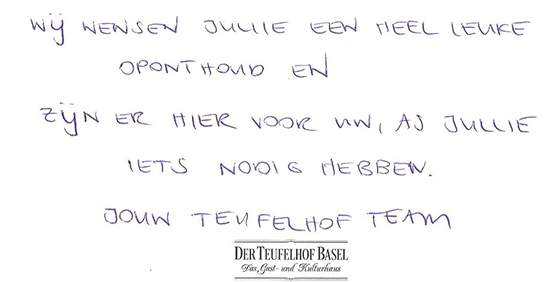 WIJ WENSEN JULLIE EEN HEEL LEUKE
OPONTHOUD EN
ZIJN ER HIER VOOR UW, AS JULLIE
IETS NODIG HEBBEN.
JOUW TEUFELHOF TEAM
DER TEUFELHOF BASEL
Das Gast- und Kulturhaus